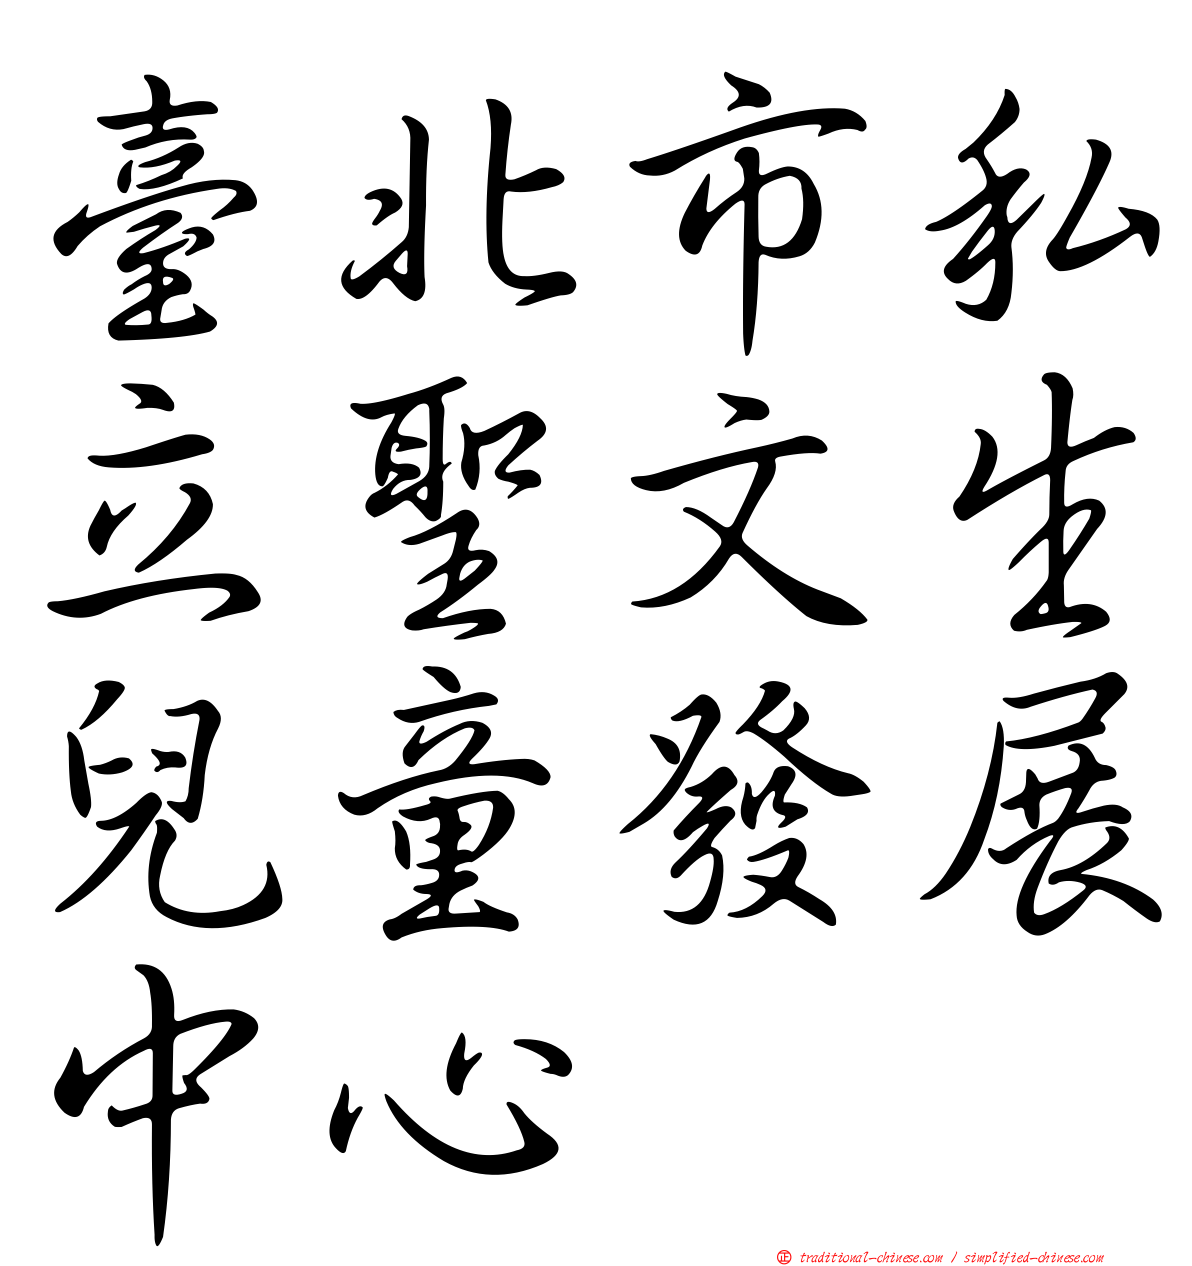 臺北市私
立聖文生
兒童發展
中心
㊣ traditional-chinese.com / simplified-chinese.com